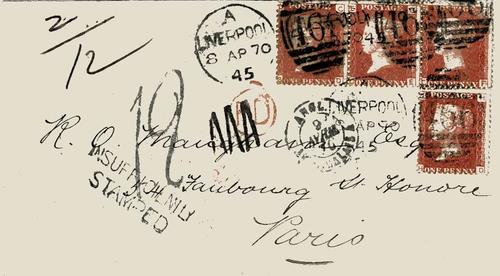 2/12
A
LIVERPOOL
8 AP 70
45
POSTAGE
ONE PENNY
ONE PENNY
ONE PENNY
LIVERPOOL
AP 70
45
POSTAGE
ONE PENNY
ANGL.
12
R. O. Esq
INSUFFICIENTLY
STAMPED
Faubourg St Honore
Paris